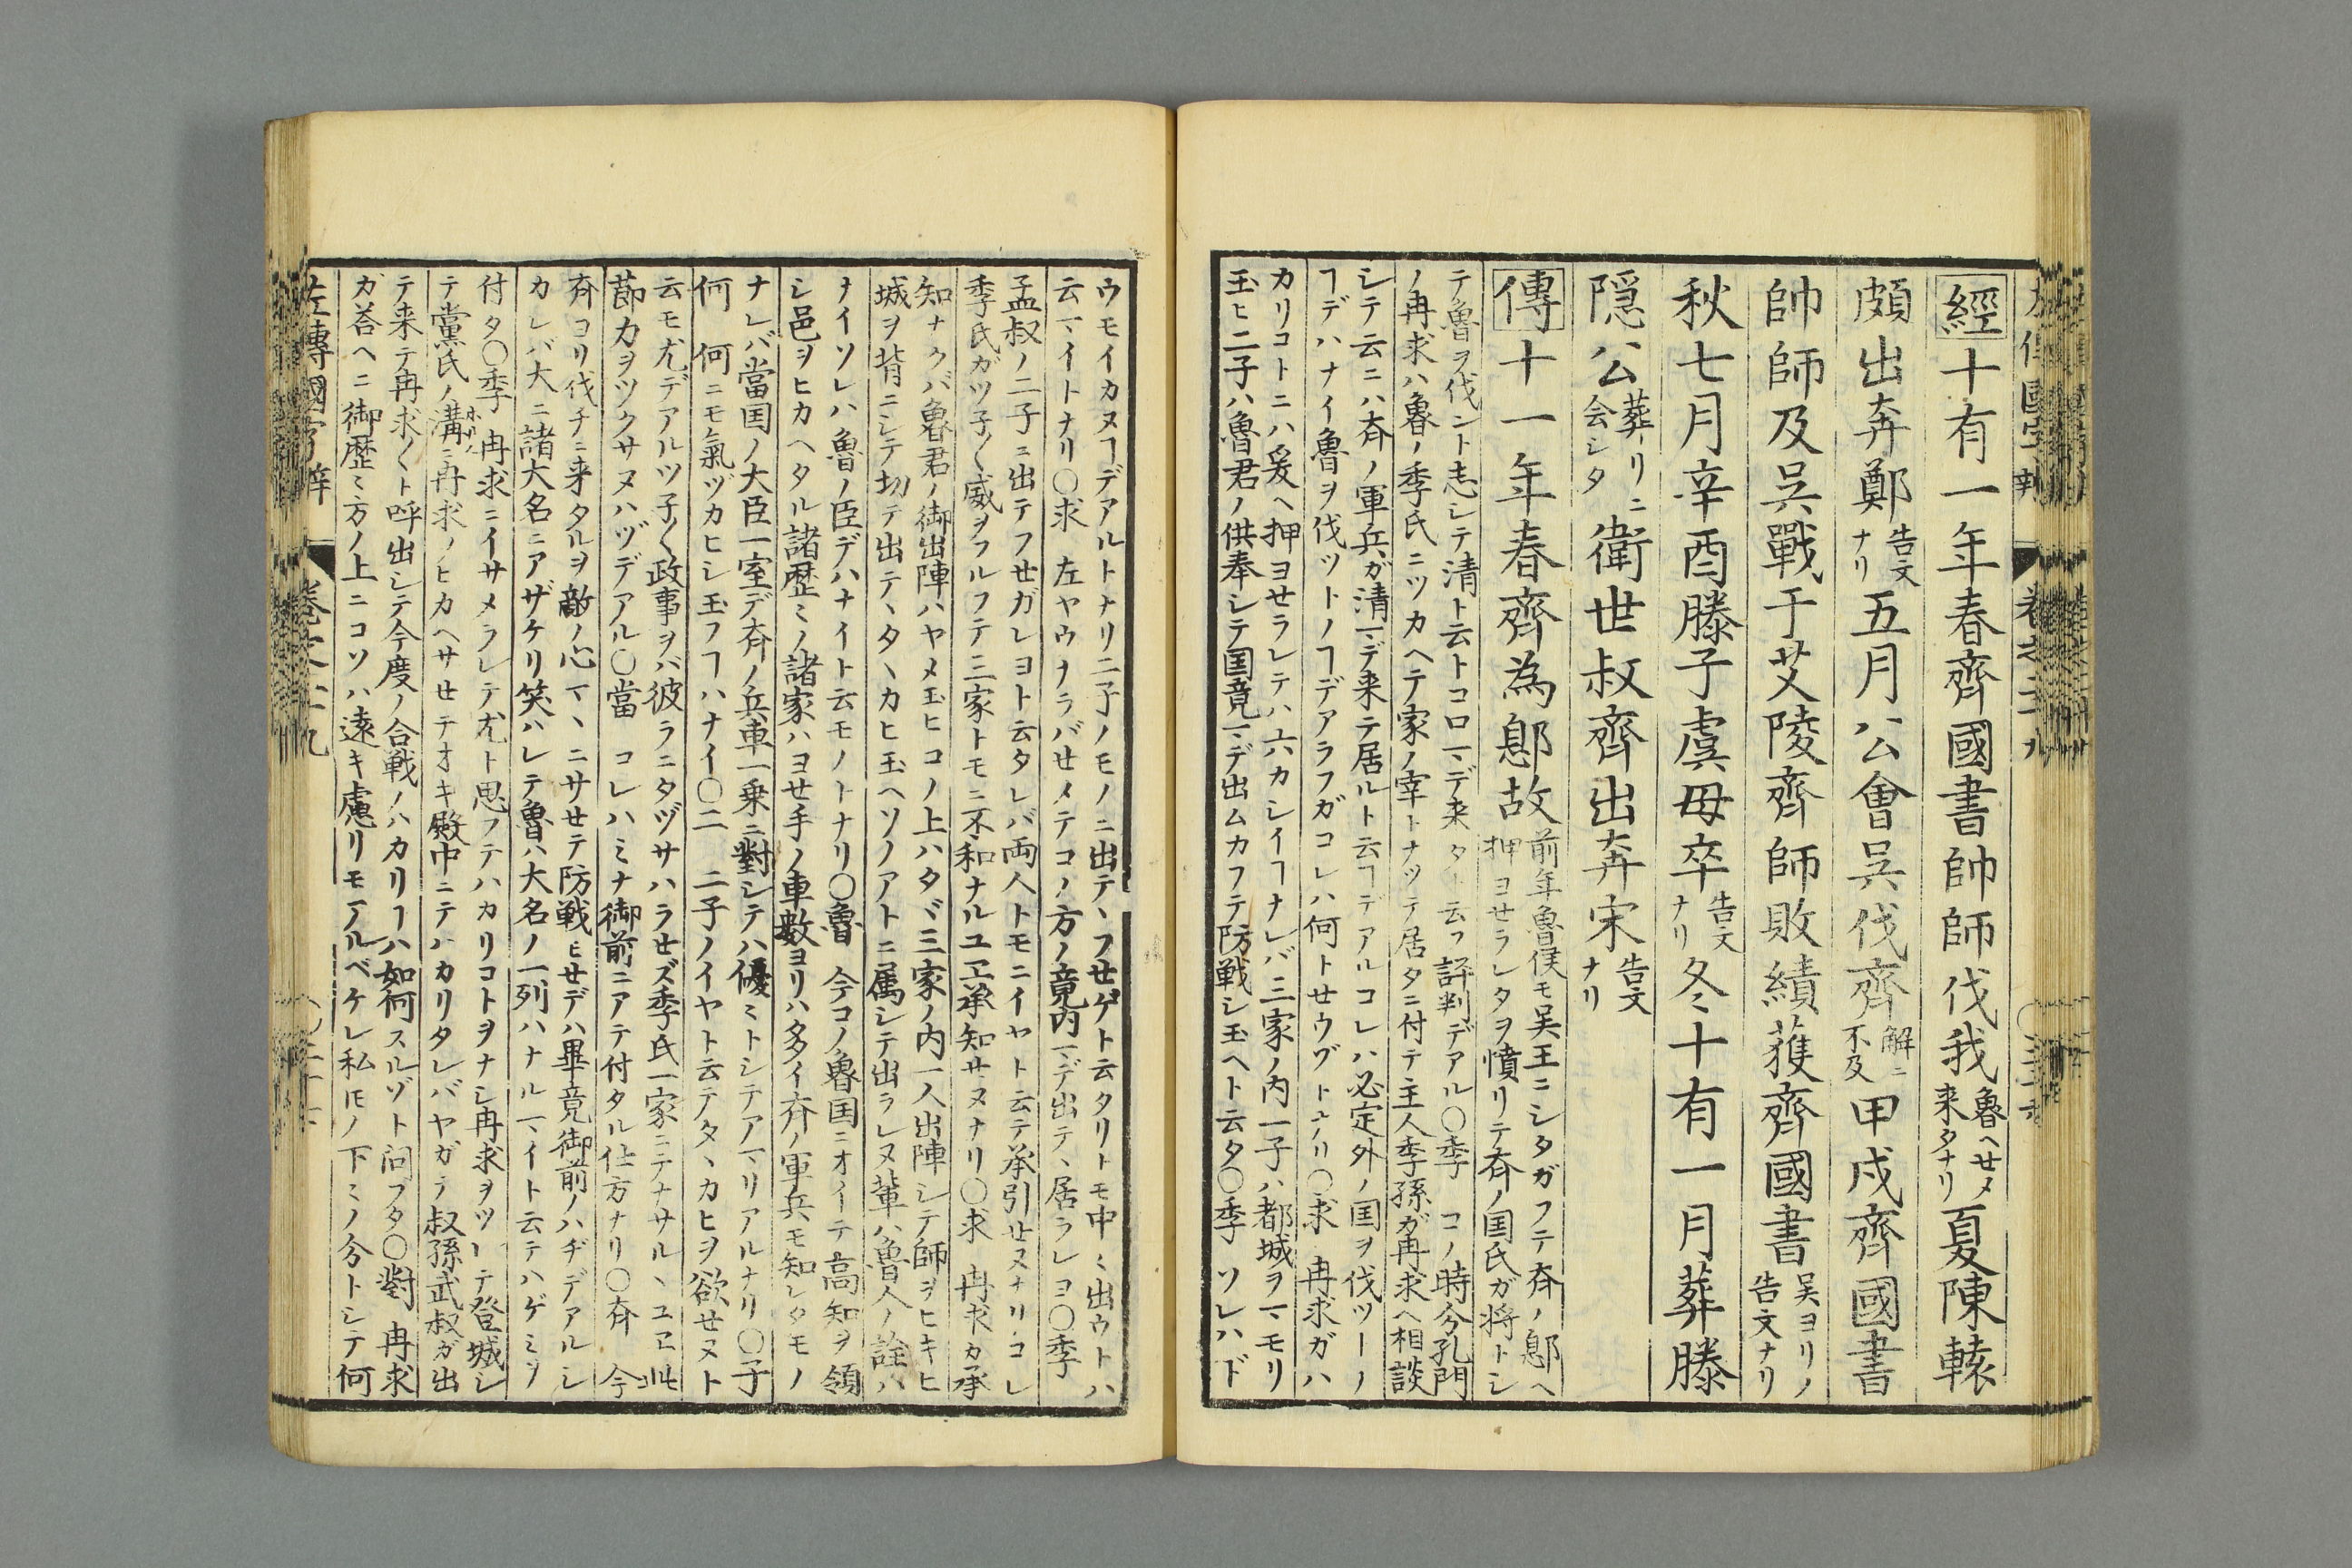 經十有一年春齊國書帥師伐我魯ヘせメ来タナリ夏陳轅
頗出奔鄭告文ナリ五月公會呉伐齊解ニ不及甲戌齊國書
帥師及呉戰于艾陵齊師敗績獲齊國書呉ヨリノ告文ナリ
秋七月辛酉滕子虞母卒告文ナリ冬十有一月葬滕
隠公葬リニ会シタ衛世叔齊出奔宋告文ナリ
傳十一年春齊為鄎故前年魯侯モ呉王ニシタガフテ斉ノ鄎ヘ押ヨせラレタヲ憤リテ斉ノ国氏ガ将トシ
テ魯ヲ伐ント志シテ清ト云トコロマデ来タト云フ評判デアル〇季 コノ時今孔門
ノ冉求ハ魯ノ季氏ニツカヘテ家ノ宰トナツテ居タニ付テ主人季孫ガ冉求ヘ相談
シテ云ニハ斉ノ軍兵ガ清マデ来テ居ルト云ヿデアルコレハ必定外ノ国ヲ伐ツーノ
ヿデハナイ魯ヲ伐ツトノヿデアラフガコレハ何トせウゾトナリ〇求 冉求ガハ
カリコトニハ爰ヘ押ヨせラレテハ六カシイヿナレバ三家ノ内一子ハ都城ヲマモリ
玉ヒ二子ハ魯君ノ供奉シテ国竟マデ出ムカフテ防戦シ玉ヘト云タ〇季 ソレハド
ウモイカヌヿデアルトナリ二子ノモノニ出テヽフせゲト云タリトモ中〻出ウトハ
云マイトナリ〇求 左ヤウナラバせメテコノ方ノ竟内マデ出テヽ居ラレヨ〇季
孟叔ノ二子ニ出テフせガレヨト云タレバ両人トモニイヤト云テ承引せヌナリコレ
季氏ガツ子〱威ヲフルフテ三家トモニ不和ナルユヱ承知サヌナリ〇求 冉求カ承
知ナクバ魯君ノ御出陣ハヤメ玉ヒコノ上ハタヾ三家ノ内一人出陣シテ師ヲヒキヒ
城ヲ背ニシテ切テ出テヽタヽカヒ玉ヘソノアトニ属シテ出ラレヌ輩ハ魯人ノ詮ハ
ナイソレハ魯ノ臣デハナイト云モノトナリ〇魯 今コノ魯国ニオイテ高知ヲ領
シ邑ヲヒカヘタル諸歴〻ノ諸家ハヨせ手ノ車數ヨリハ多イ斉ノ軍兵モ知レタモノ
ナレバ當国ノ大臣一室デ斉ノ兵車一乗ニ對シテハ優〻トシテアマリアルナリ〇子
何 何ニモ氣ヅカヒシ玉フヿハナイ〇二 二子ノイヤト云テタヽカヒヲ欲せヌト
云モ尤デアルツ子〱政事ヲバ彼ラニタヅサハラせズ季氏一家ニテナサルヽユヱ此
節力ヲツクサヌハヅデアル〇當 コレハミナ御前ニアテ付タル仕方ナリ〇斉 今
斉ヨリ伐チニ来タルヲ敵ノ心マヽニサせテ防戦ヒせデハ畢竟御前ノハヂデアルシ
カレバ大ニ諸大名ニアザケリ笑ハレテ魯ハ大名ノ一列ハナルマイト云テハゲミヲ
付タ〇季 冉求ニイサメラレテ尤ト思フテハカリコトヲナシ冉求ヲツーテ登城シ
テ黨氏ノ溝ニ冉求ノヒカヘサせテオキ殿中ニテハカリタレバヤガテ叔孫武叔ガ出
テ来テ冉求〱ト呼出シテ今度ノ合戦ノハカリヿハ如何スルゾト问フタ〇對 冉求
ガ荅ヘニ御歴〻方ノ上ニコソハ遠キ慮リモアルベケレ私𪜈ノ下〻ノ分トシテ何